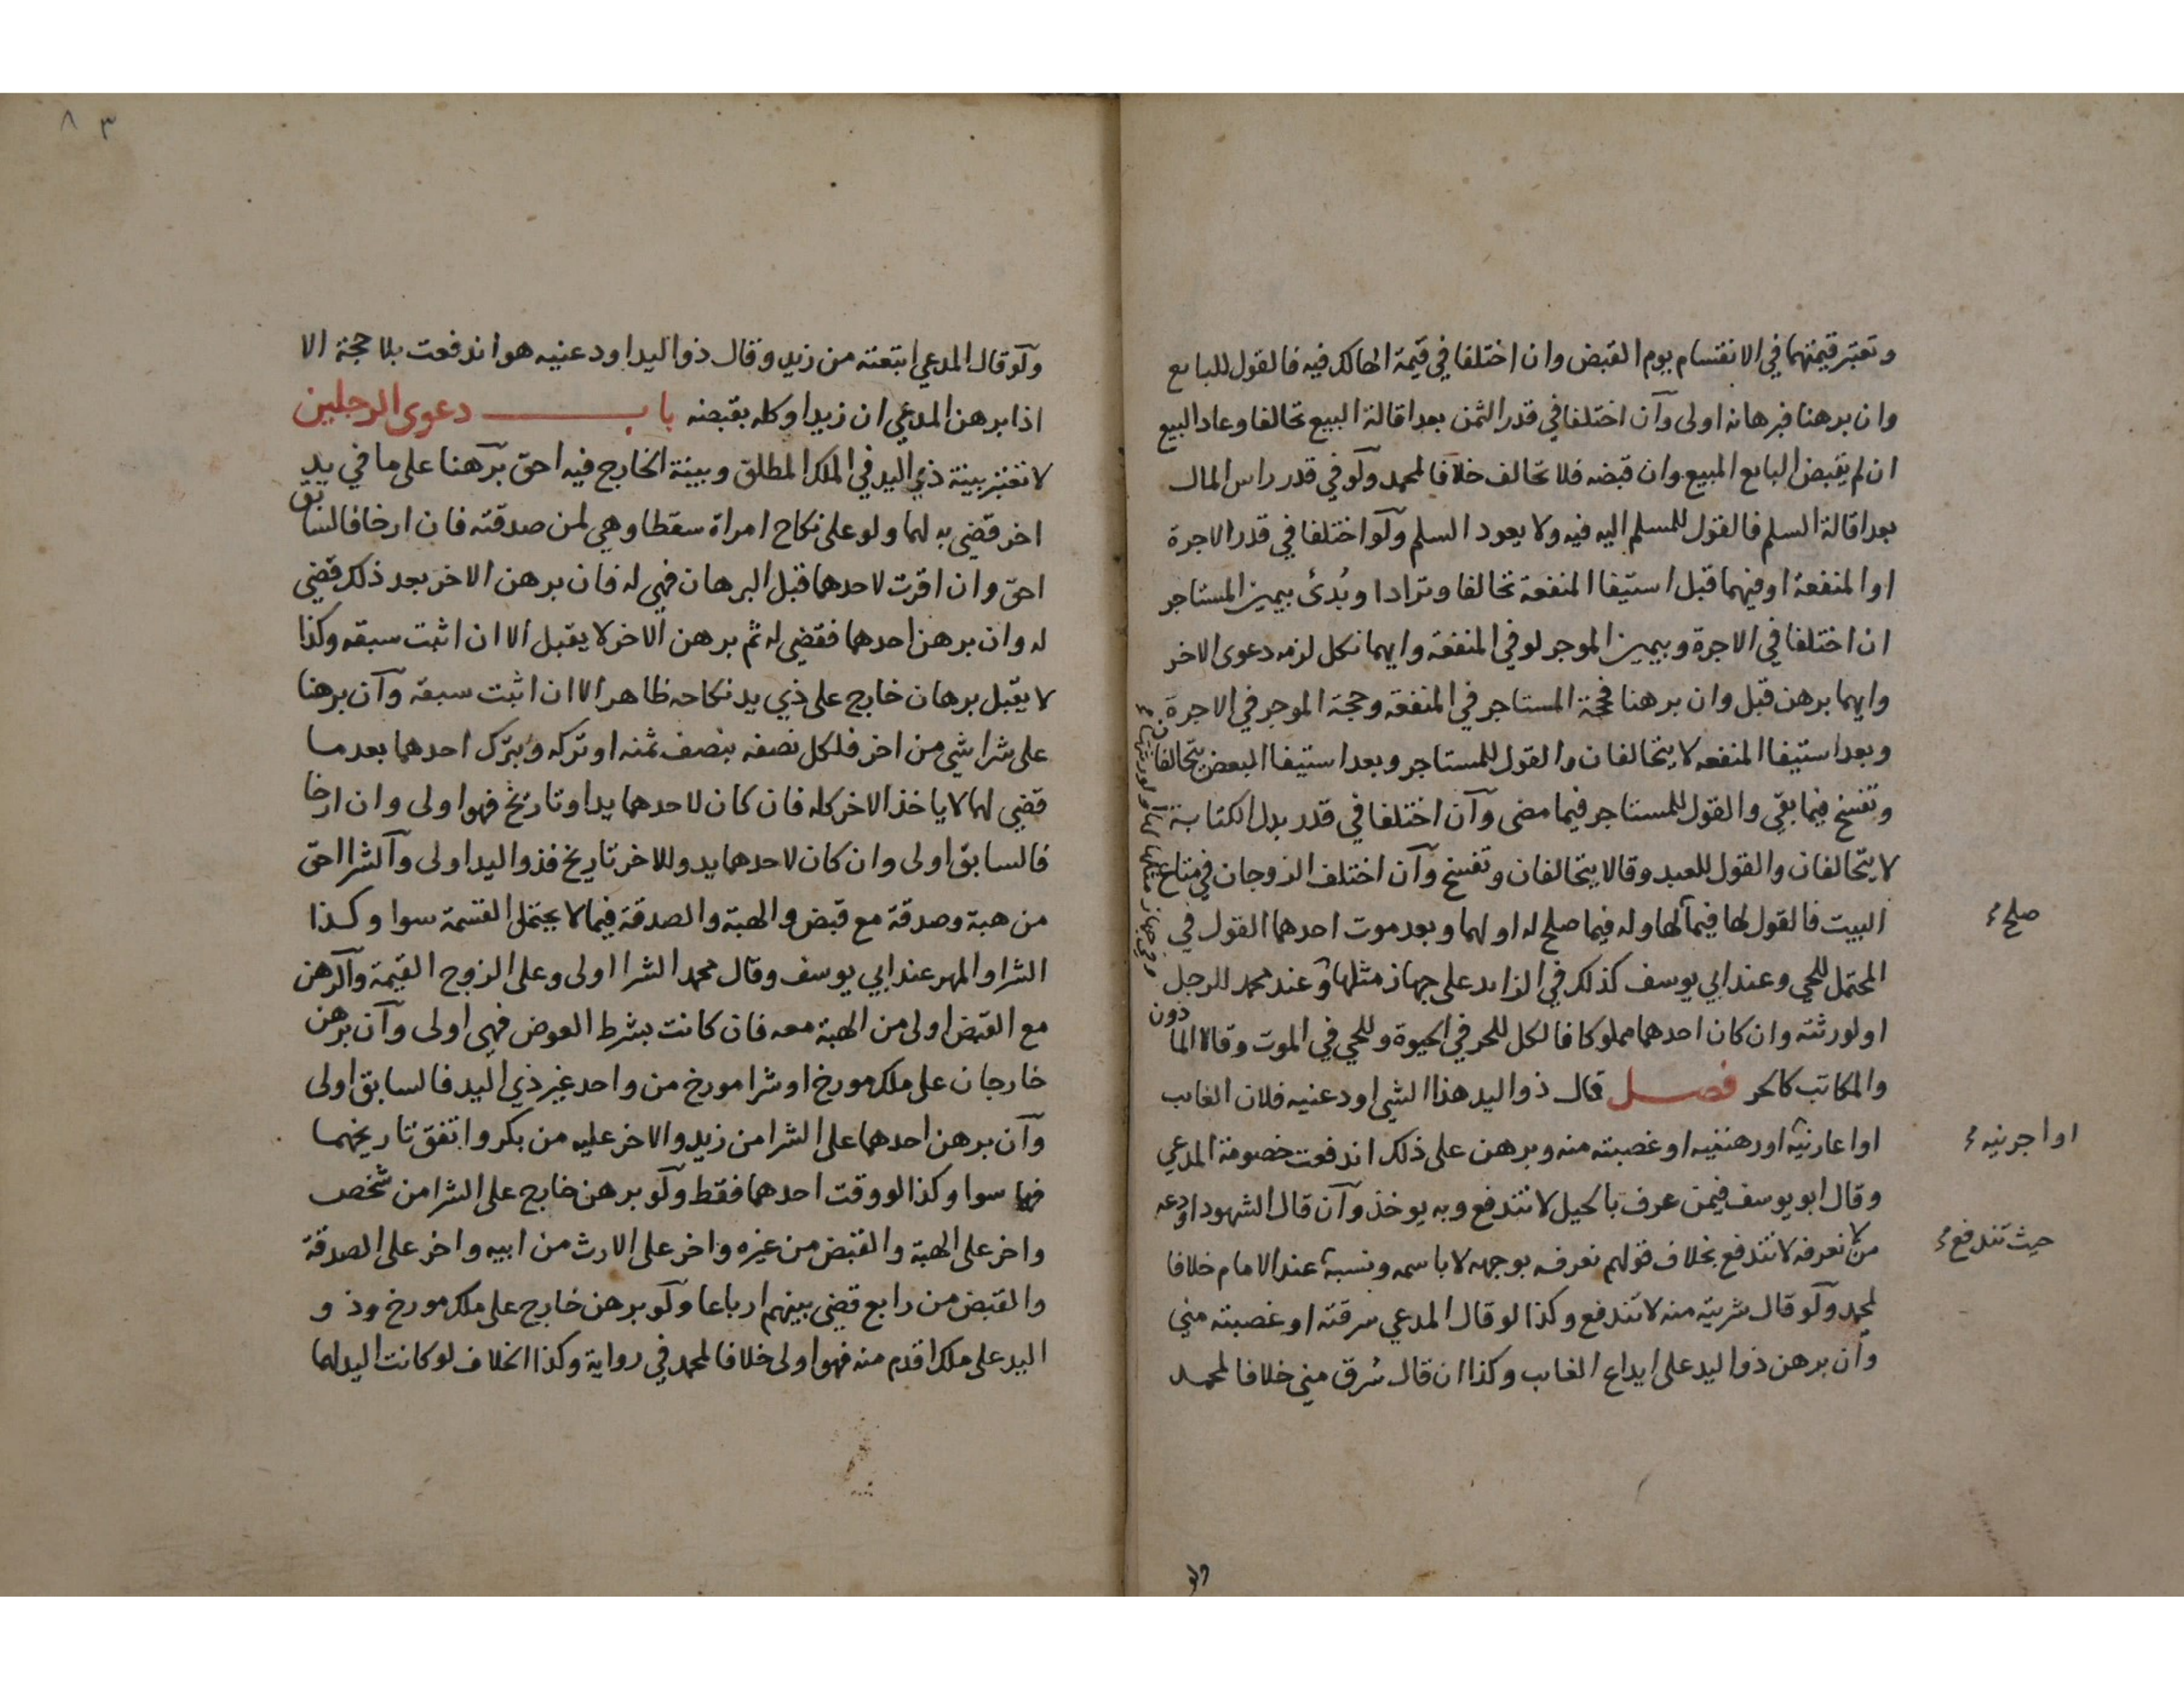 وتعتبر قيمتهما في الانقسام يوم القبض وان اختلفا في قيمة الهالك فيه فالقول للبايع
وان برهنا فبرهانه اولى وآن اختلفا في قدر الثمن بعد اقالة البيع تحالفا وعاد البيع
ان لم يقبض البايع المبيع وان قبضه فلا تحالف خلافا لمحمد ولو في قدر راس المال
بعد اقالة السلم فالقول للمسلم اليه فيه ولا يعود السلم ولو اختلفا في قدر الاجرة
او المنفعة او فيهما قبل استيفا المنفعة تحالفا وترادا وبُدئ بيمين المستاجر
ان اختلفا في الاجرة وبيمين الموجر لو في المنفعة وايهما نكل لزمه دعوى الاخر
وايهما برهن قبل وان برهنا فحجة المستاجر في المنفعة وحجة الموجر في الاجرة
وبعد استيفا المنفعه لا يتحالفان والقول للمستاجر وبعد استيفا البعض يتحالفان
وتفسخ فيما بقي والقول للمستاجر فيما مضى وآن اختلفا في قدر بدل الكتابة
لا يتحالفان والقول للعبد وقالا يتحالفان وتفسخ وآن اختلف الزوجان في متاع
البيت فالقول لها فيما لها وله فيما صلح له او لهما وبعد موت احدهما القول في
صلح
المحتمل للحي وعند ابي يوسف كذلك في الزايد على جهاز مثلها وعند محمد للرجل
وفي جهاز مثلها لها او لورثتها
او لورثته وان كان احدهما مملوكا فالكل للحر في الحيوة وللحي في الموت وقالا الماذون
والمكاتب كالحر فصل قال ذو اليد هذا الشي اودعنيه فلان الغايب
او اعارنيه او رهننيه او غصبته منه وبرهن على ذلك اندفعت خصومة المدعي
او اجرنيه
وقال ابو يوسف فيمن عرف بالحيل لا تندفع وبه يوخذ وآن قال الشهود اودعه
من لا نعرفه لا تندفع بخلاف قولهم نعرفه بوجهه لا باسمه ونسبه عند الامام خلافا
حيث تندفع
لمحمد ولو قال شريته منه لا تندفع وكذا لو قال المدعي سرقته او غصبته مني
وان برهن ذو اليد على ايداع الغايب وكذا ان قال سُرق مني خلافا لمحمد
ولو
٨٣
ولو قال المدعي ابتعته من زيد وقال ذو اليد اودعنيه هو اندفعت بلا حجة الا
اذا برهن المدعي ان زيدا وكله بقبضه باب دعوى الرجلين
لا تعتبر بينة ذي اليد في الملك المطلق وبينة الخارج فيه احق برهنا على ما في يد
اخر قضي به لهما ولو على نكاح امراة سقطا وهي لمن صدقته فان ارخا فالسابق
احق وان اقرت لاحدهما قبل البرهان فهي له فان برهن الاخر بعد ذلك قضي
له وان برهن احدهما فقضي له ثم برهن الاخر لا يقبل الا ان اثبت سبقه وكذا
لا يقبل برهان خارج على ذي يد نكاحه ظاهر الا ان اثبت سبقه وآن برهنا
على شرا شي من اخر فلكل نصفه بنصف ثمنه او تركه وبترك احدهما بعد ما
قضي لهما لا ياخذ الاخر كله فان كان لاحدهما يد او تاريخ فهو اولى وان ارخا
فالسابق اولى وان كان لاحدهما يد وللاخر تاريخ فذو اليد اولى وآلشرا احق
من هبة وصدقة مع قبض والهبة والصدقة فيما لا يحتمل القسمة سوا وكذا
الشرا والمهر عند ابي يوسف وقال محمد الشرا اولى وعلى الزوج القيمة وآلرهن
مع القبض اولى من الهبة معه فان كانت بشرط العوض فهي اولى وآن برهن
خارجان على ملك مورخ او شرا مورخ من واحد غير ذي اليد فالسابق اولى
وآن برهن احدهما على الشرا من زيد والاخر عليه من بكر واتفق تاريخهما
فهما سوا وكذا لو وقت احدهما فقط ولو برهن خارج على الشرا من شخص
واخر على الهبة والقبض من غيره واخر على الارث من ابيه واخر على الصدقة
والقبض من رابع قضي بينهم ارباعا ولو برهن خارج على ملك مورخ وذو
اليد على ملك اقدم منه فهو اولى خلافا لمحمد في رواية وكذا الخلاف لو كانت اليد لهما